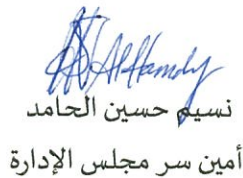 نسيم حسين الحامد
أمين سر مجلس الإدارة